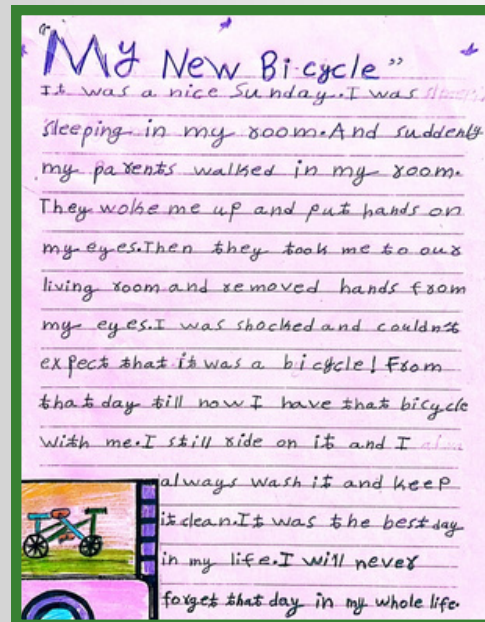 "My New Bicycle"
It was a nice Sunday. I was
sleeping in my room. And suddenly
my parents walked in my room.
They woke me up and put hands on
my eyes. Then they took me to our
living room and removed hands from
my eyes. I was shocked and couldn't
expect that it was a bicycle! From
that day till now I have that bicycle
with me. I still ride on it and I
always wash it and keep
it clean. It was the best day
in my life. I will never
forget that day in my whole life.